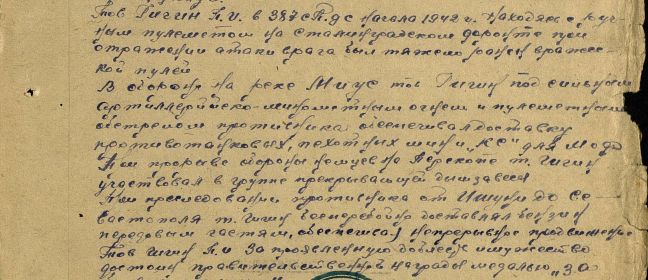 Тов Гигин П.И. в 387 с.п. д с начала 1942 г. Находясь с руч-
ным пулеметом на Сталинградском фронте при
отражении атаки врага был тяжело ранен вражес-
кой пулей
В обороне на реке Миус тов Гигин под сильным
артиллерийско-минометным огнем и пулеметным
обстрелом противника обеспечивал доставку
противотанковых, пехотных мин и "КС" для
При прорыве обороны немцев на Перекопе т. Гигин
участвовал в группе прекрывающей дымзавеси
При преследовании противника от Ишуни до Се-
вастополя т. Гигин бесперебойно доставлял бензин
передовым частям, обеспечивая непрерывное продвижение
Тов Гигин П.И за проявленную доблесть и мужество
достоин правительственной награды медалью "За